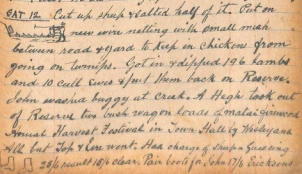 SAT 12. Cut up sheep & salted half of it. Put on
new wire netting with small mesh
between road & yard to keep in chickens from
going on turnips. Got in & dipped 196 lambs
and 10 cull Ewes & put them back on Reserve.
John washed buggy at creek. A Hegh took out
of Reserve two bush wagon loads of matai firewood
Annual Harvest Festival in Town Hall by Wesleyans
All but Top & Len went. Had change of sheep & Guessing
25/6 result 15/6 clear. Pair boots for John 17/6 Ericksons